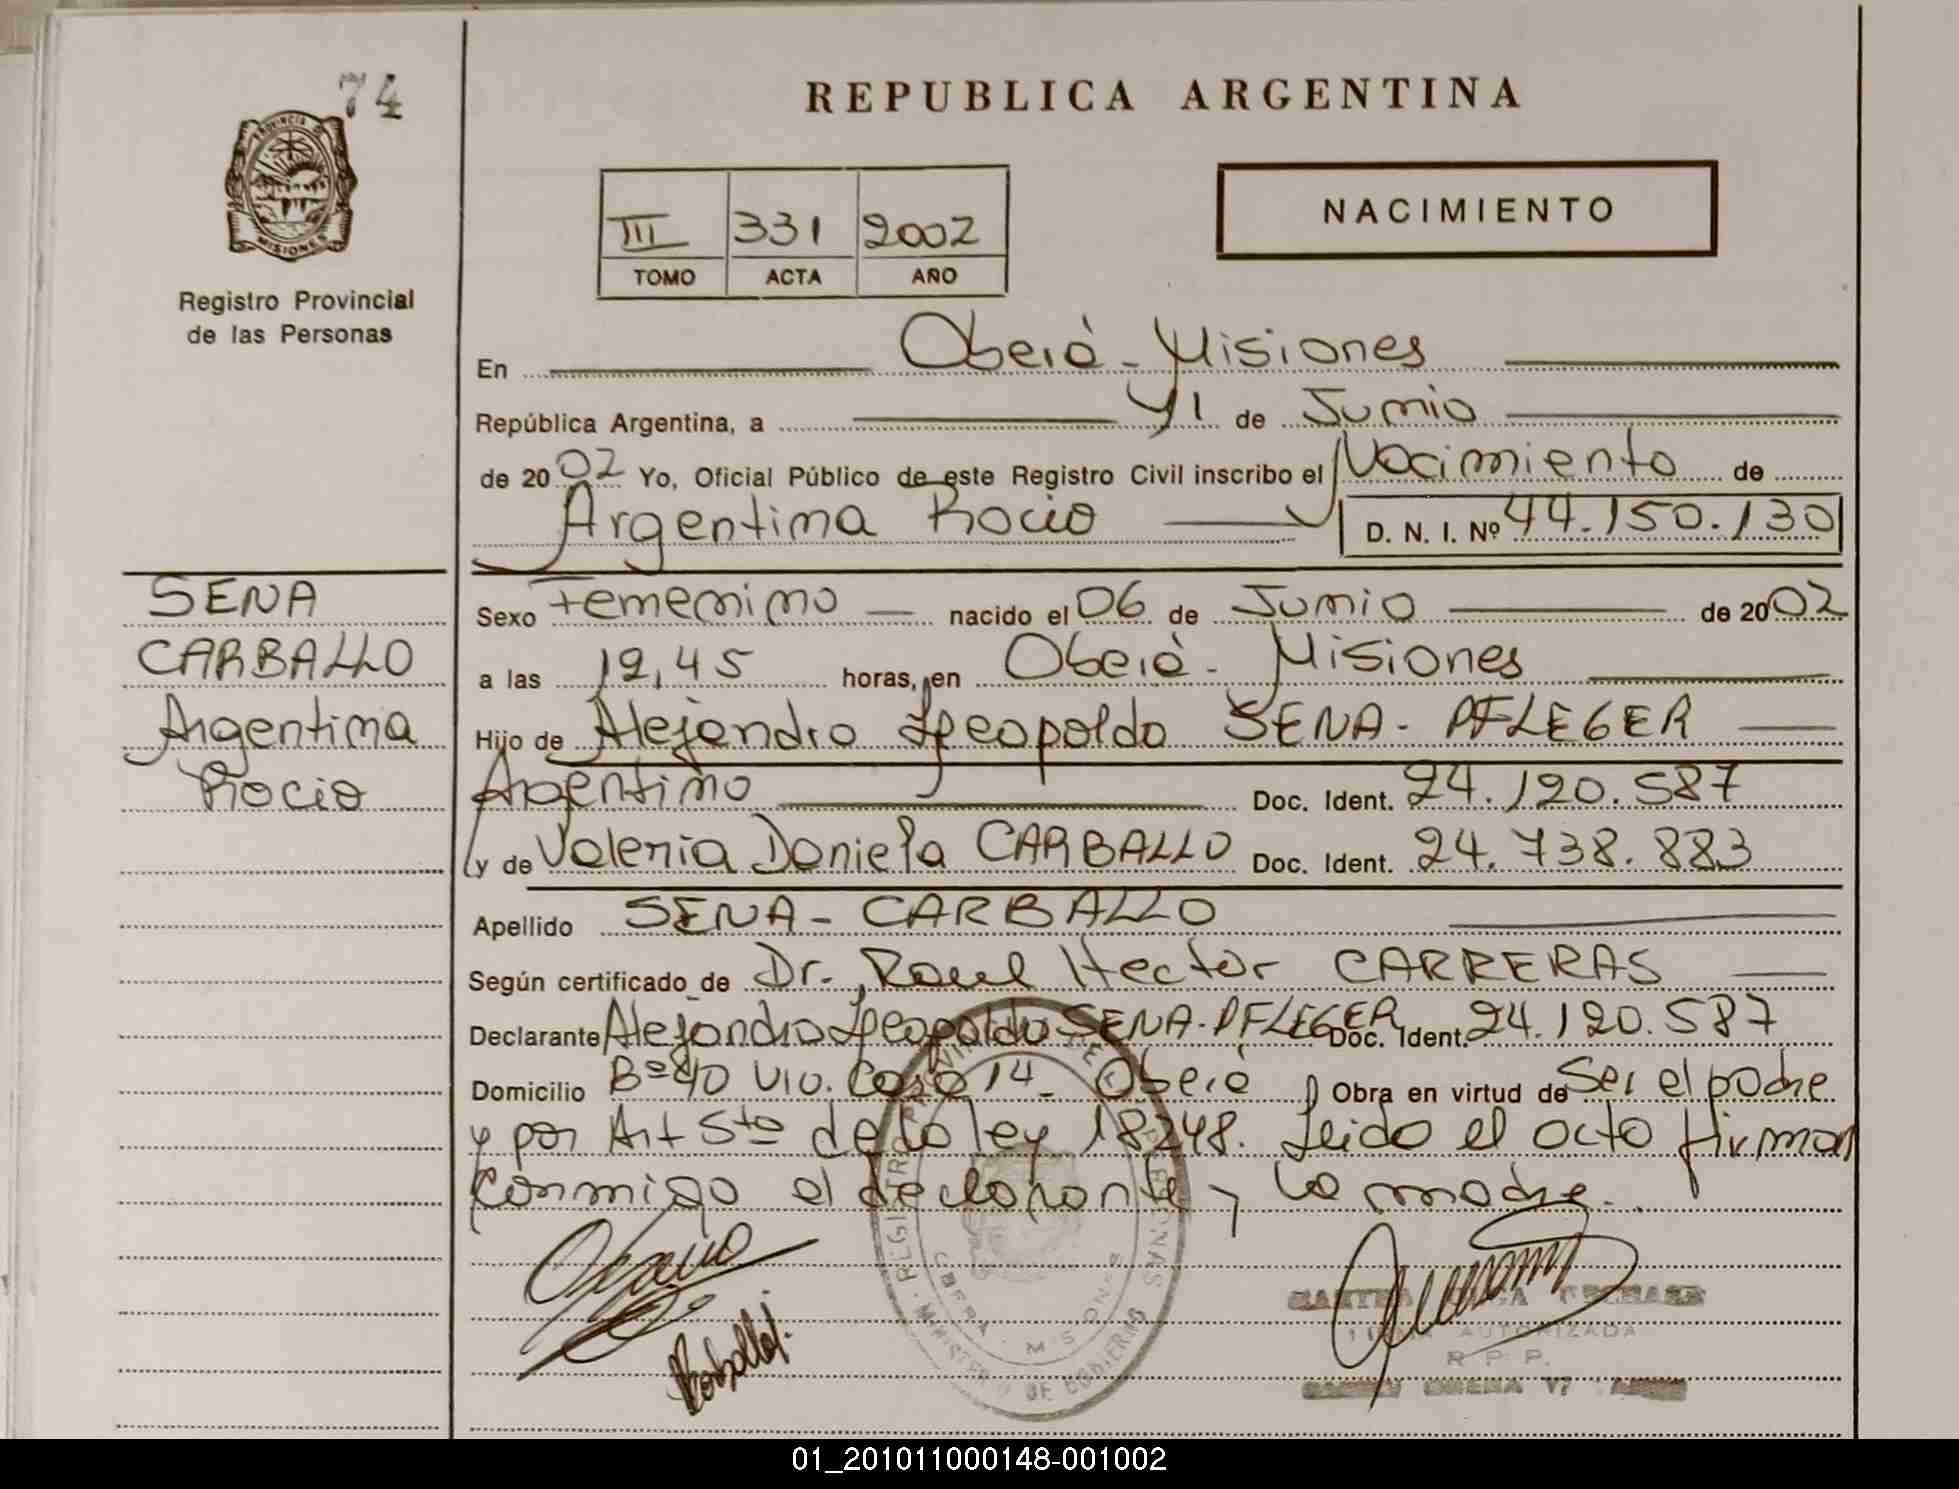 74
PROVINCIA DE
MISIONES
Registro Provincial
de las Personas
SENA
CARBALLO
Argentina
Rocio
REPUBLICA ARGENTINA
III 331 2002
TOMO ACTA AÑO
NACIMIENTO
En Oberá - Misiones
República Argentina, a 11 de Junio
de 2002 Yo, Oficial Público de este Registro Civil inscribo el Nacimiento de
Argentina Rocio D. N. I. Nº 44.150.130
Sexo Femenino nacido el 06 de Junio de 2002
a las 12,45 horas, en Oberá - Misiones
Hijo de Alejandro Leopoldo SENA - PFLEGER
Argentino Doc. Ident. 24.120.587
y de Valeria Daniela CARBALLO Doc. Ident. 24.738.883
Apellido SENA - CARBALLO
Según certificado de Dr. Raul Hector CARRERAS
Declarante Alejandro Leopoldo SENA - PFLEGER Doc. Ident. 24.120.587
Domicilio Bº 40 Viv. Casa 14 - Oberá Obra en virtud de Ser el padre
y por Art 5to de la ley 18248. Leido el acto firman
conmigo el declarante y la madre.
REGISTRO PROVINCIAL DE LAS PERSONAS
MINISTERIO DE GOBIERNO
OBERA - MISIONES
AUTORIZADA
R. P. P.
01_201011000148-001002